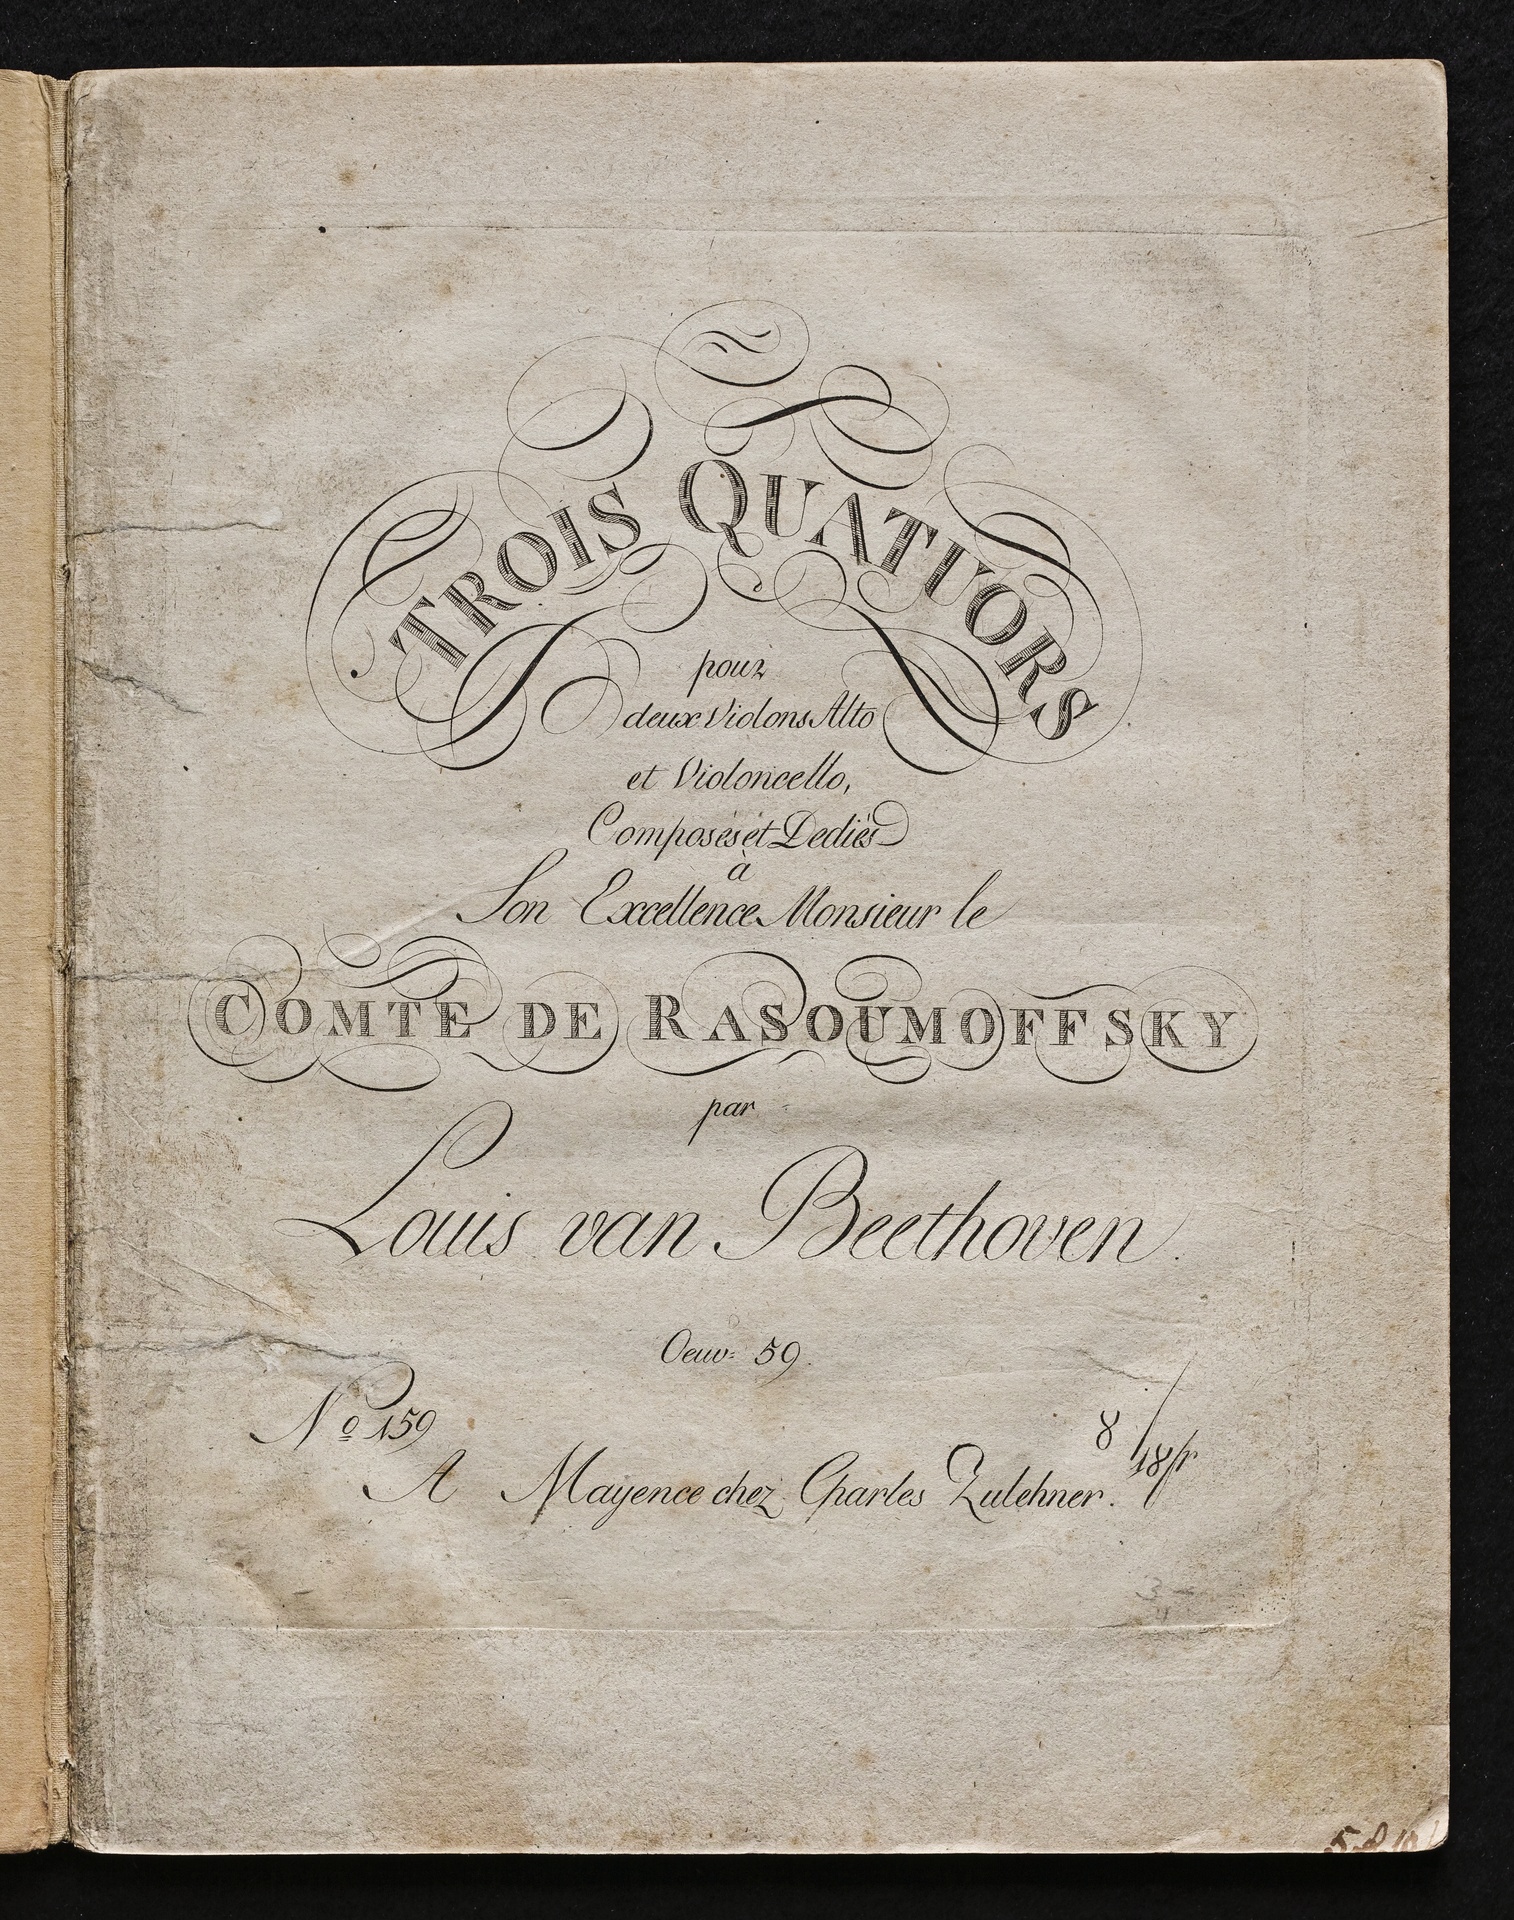 TROIS QUATUORS
pour
deux Violons Alto
et Violoncello,
Composés et Dediés
à
Son Excellence Monsieur le
COMTE DE RASOUMOFFSKY
par
Louis van Beethoven.
Oeuv: 59.
No 159
8
18 fr
A Mayence chez Charles Zulehner.
3 -